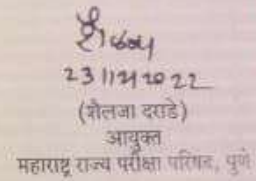 23/12/2022
(शैलजा दराडे)
आयुक्त
महाराष्ट्र राज्य परीक्षा परिषद, पुणे